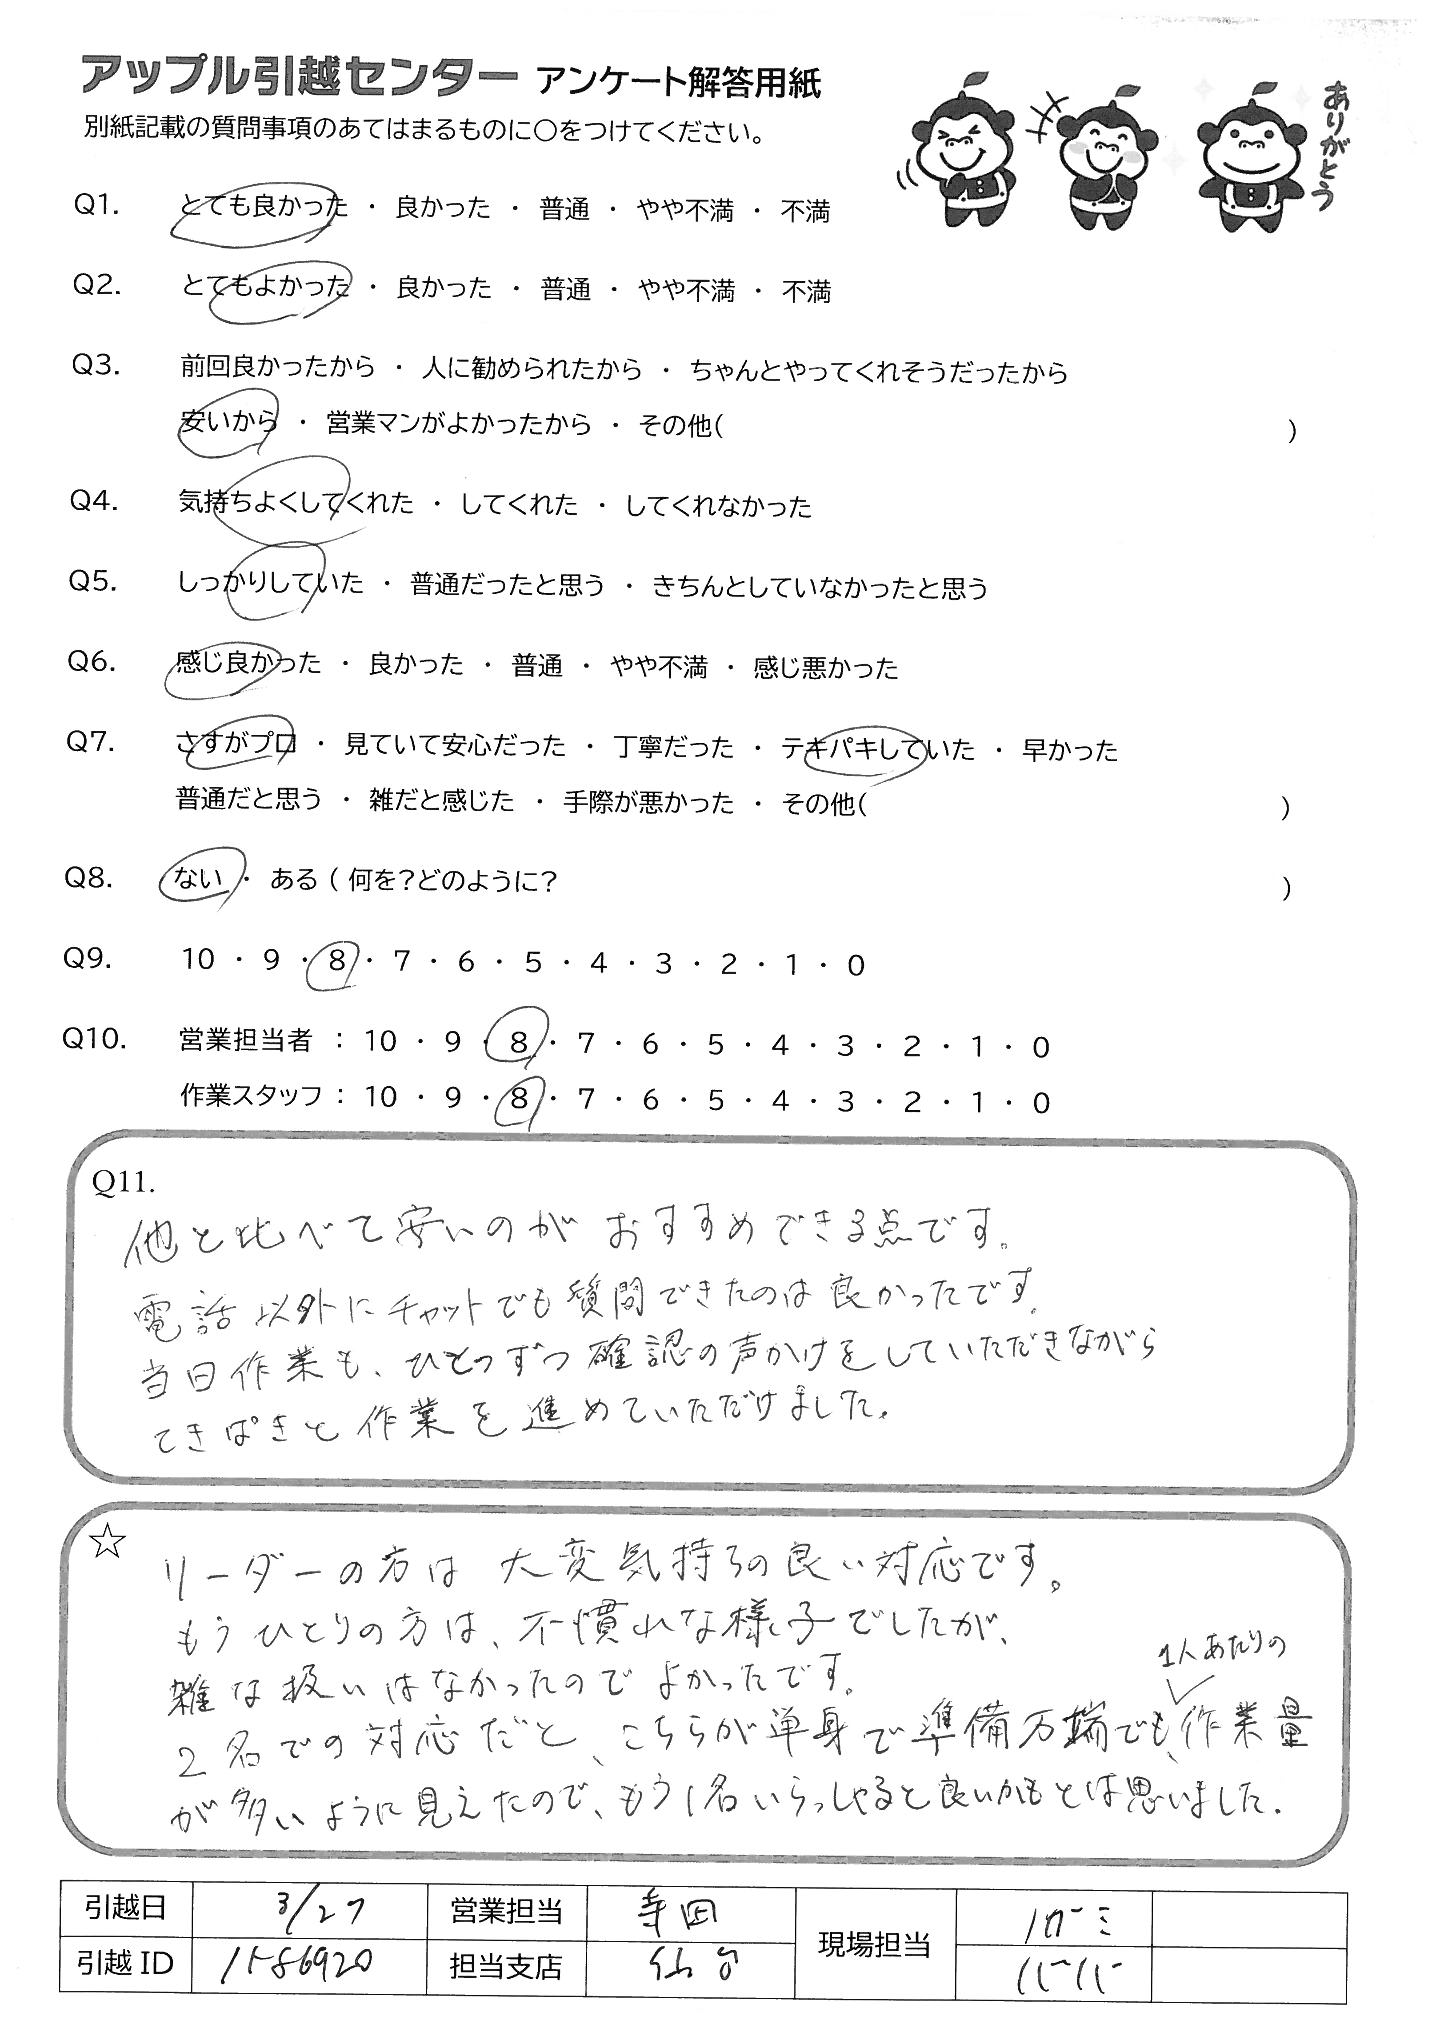 アップル引越センター アンケート解答用紙
ありがとう
別紙記載の質問事項のあてはまるものに○をつけてください。
Q1. とても良かった ・ 良かった ・ 普通 ・ やや不満 ・ 不満
Q2. とてもよかった ・ 良かった ・ 普通 ・ やや不満 ・ 不満
Q3. 前回良かったから ・ 人に勧められたから ・ ちゃんとやってくれそうだったから
安いから ・ 営業マンがよかったから ・ その他( )
Q4. 気持ちよくしてくれた ・ してくれた ・ してくれなかった
Q5. しっかりしていた ・ 普通だったと思う ・ きちんとしていなかったと思う
Q6. 感じ良かった ・ 良かった ・ 普通 ・ やや不満 ・ 感じ悪かった
Q7. さすがプロ ・ 見ていて安心だった ・ 丁寧だった ・ テキパキしていた ・ 早かった
普通だと思う ・ 雑だと感じた ・ 手際が悪かった ・ その他( )
Q8. ない ・ ある ( 何を?どのように? )
Q9. 10 ・ 9 ・ 8 ・ 7 ・ 6 ・ 5 ・ 4 ・ 3 ・ 2 ・ 1 ・ 0
Q10. 営業担当者 : 10 ・ 9 ・ 8 ・ 7 ・ 6 ・ 5 ・ 4 ・ 3 ・ 2 ・ 1 ・ 0
作業スタッフ : 10 ・ 9 ・ 8 ・ 7 ・ 6 ・ 5 ・ 4 ・ 3 ・ 2 ・ 1 ・ 0
Q11.
他と比べて安いのがおすすめできる点です。
電話以外にチャットでも質問できたのは良かったです。
当日作業も、ひとつずつ確認の声かけをしていただきながら
てきぱきと作業を進めていただけました。
☆
リーダーの方は大変気持ちの良い対応です。
もうひとりの方は、不慣れな様子でしたが、
雑な扱いはなかったのでよかったです。
1人あたりの
2名での対応だと、こちらが単身で準備万端でも、作業量
が多いように見えたので、もう1名いらっしゃると良いかもとは思いました。
引越日 3/27 営業担当 寺田 現場担当
引越ID 1586920 担当支店 仙台